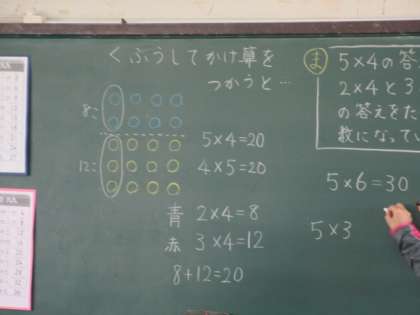 くふうしてかけ算を
つかうと…
8こ
12こ
5×4=20
4×5=20
青 2×4=8
赤 3×4=12
8+12=20
ま 5×4の答
2×4と3
の答えをた
数になってい
5×6=30
5×3